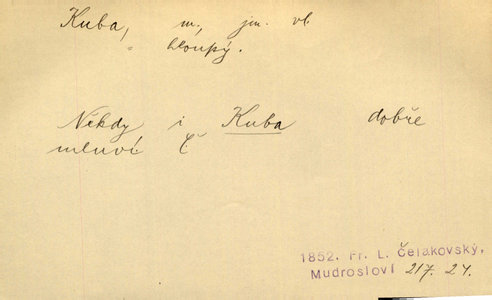 Kuba, m. jm. vl.
„ hloupý.
Někdy i Kuba dobře
mluví. Č
1852. Fr. L. Čelakovský,
Mudrosloví 217. 24.